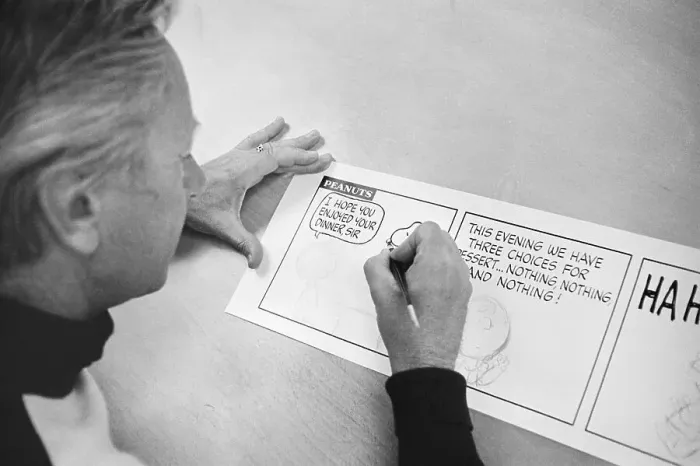 PEANUTS
I HOPE YOU
ENJOYED YOUR
DINNER, SIR
THIS EVENING WE HAVE
THREE CHOICES FOR
DESSERT... NOTHING, NOTHING
AND NOTHING!
HAH